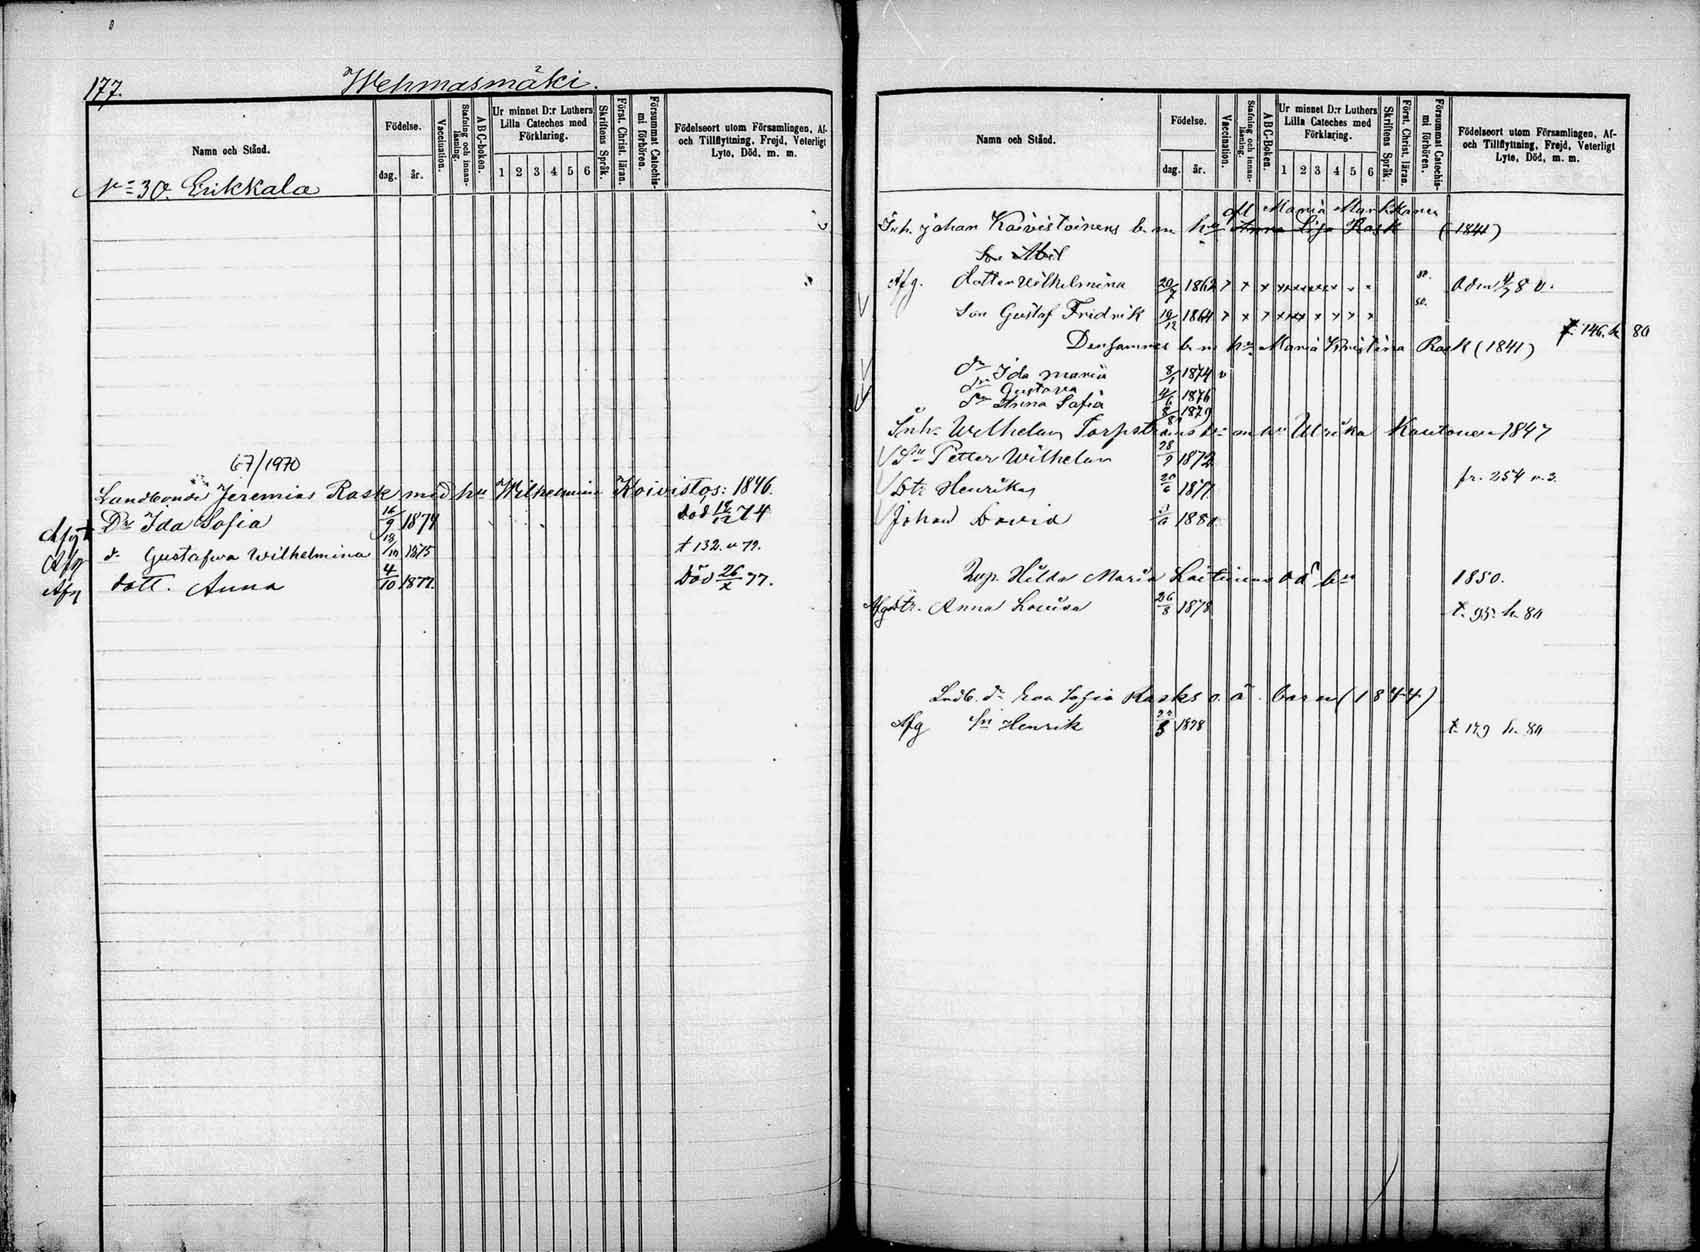 177.
Wehmasmäki.
Namn och Stånd.
Födelse.
dag.
år.
Vaccination.
Stafning och innanläsning.
ABC-boken.
Ur minnet D:r Luthers Lilla Cateches med Förklaring.
1 2 3 4 5 6
Skriftens Språk.
Först. Christ. läran.
Försummat Catechismi förhören.
Födelseort utom Församlingen, Af- och Tillflyttning, Frejd, Veterligt Lyte, Död, m. m.
N:o 30. Erikkala
67/1970
Landbonde Jeremias Rask med hu Wilhelmina Koivistos: 1846.
Afg + Dr Ida Sofia 16/9 1874 död 12/12 74
Afg d. Gustafwa Wilhelmina 18/10 1875 t 132. v 79.
Afg dott. Anna 4/10 1877 Död 26/X 77.
Namn och Stånd.
Födelse.
dag.
år.
Vaccination.
Stafning och innanläsning.
ABC-Boken.
Ur minnet D:r Luthers Lilla Cateches med Förklaring.
1 2 3 4 5 6
Skriftens Språk.
Först. Christ. läran.
Försummat Catechismi förhören.
Födelseort utom Församlingen, Af- och Tillflyttning, Frejd, Veterligt Lyte, Död, m. m.
Maria Markkanen
Inh. Johan Koivistoinens b. m hu Anna Lisa Rask (1841)
Son Abel
Afg. dotter Wilhelmina 20/7 1862 x x x x x x x x x
Son Gustaf Fridrik 19/12 1864 x x x x x x x x x
t 146. h 80
Densammes b. m hu Maria Kristina Rask (1841)
dr Ida Maria 8/1 1874 v
dr Gustava 4/6 1876
dr Anna Sofia 8/8 1879
Inh. Wilhelm Torpströms b. m hu Ulrika Kautonen 1847
Sn Petter Wilhelm 28/9 1872
Dtr Henrika 20/6 1877 fr. 254 v. 3.
Johan David 1880
Inp. Hilda Maria Laitinens o ä bn 1850.
Afg dtr. Anna Lovisa 26/8 1878 t. 95. h. 80
Lndb. dr Eva Sofia Rasks o. ä. barn (1844)
Afg sn Henrik 1878 t 179 h. 80